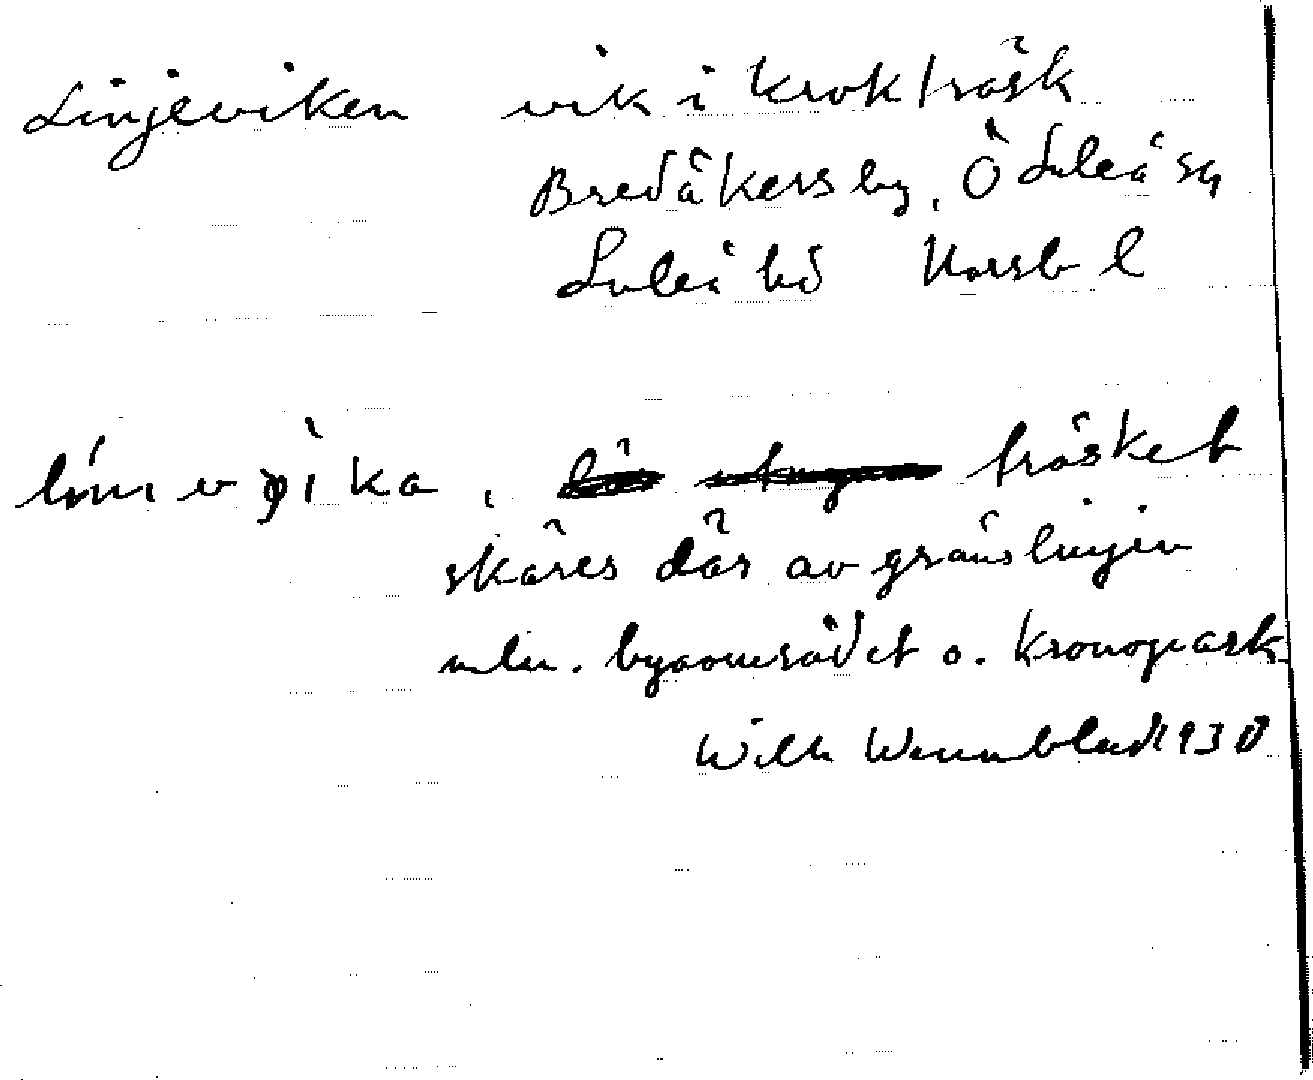 Linjeviken vik i Krokträsk
Bredåkers by, Ö Luleå sn
Luleå hd Norrb l
träsket
skäres där av gränslinjen
mln. byaområdet o. Kronopark
Wilh Wennblad 1930